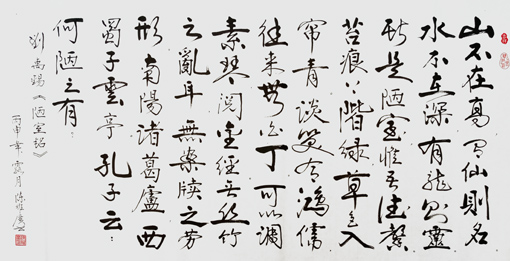 山不在高有仙則名
水不在深有龍則靈
斯是陋室惟吾德馨
苔痕上階綠草色入
帘青談笑有鴻儒
往来無白丁可以調
素琴閱金經無絲竹
之亂耳無案牘之勞
形南陽諸葛廬西
蜀子雲亭孔子云:
何陋之有:
劉禹錫《陋室銘》
丙申年露月